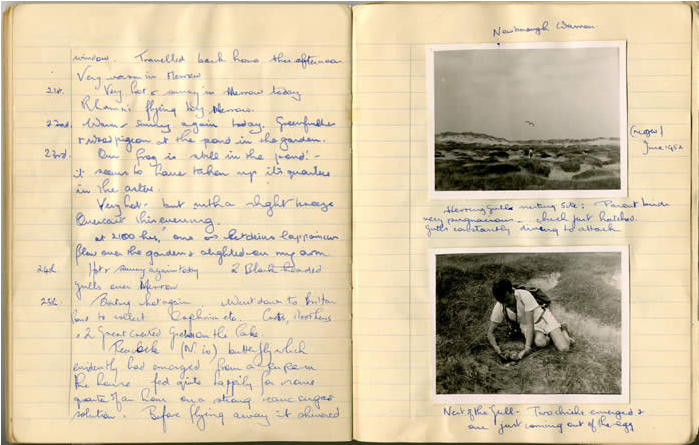 window. Travelled back home this afternoon
Very warm in Merrow
21st. Very hot & sunny in Merrow today
Rhamni flying by Merrow.
22nd. Warm & sunny again today. Greenfinches
& wood pigeon at the pond in the garden.
23rd. Our frog is still in the pond -
it seems to have taken up it's quarters
in the
Very hot - but with a slight breeze
Overcast this evening.
at 2100 hrs, one
flew over the garden & alighted on my arm
24th. Hot & sunny again today 2 Black headed
gulls over Merrow
25th. Boiling hot again. Went down to Britten
to collect etc. Coots, Moorhens
& 2 Great Crested Grebes on the Lake.
Peacock (N. io) butterfly which
evidently had emerged from a pupa in
the house fed quite happily for some
quarter of an hour on a strong sugar
solution. Before flying away it showed
Newborough Warren
June 1952
Herring Gulls nesting site: Parent birds
very pugnacious - chick just hatched.
Gulls constantly diving to attack
Nest of the Gull - Two chicks emerged &
one just coming out of the egg